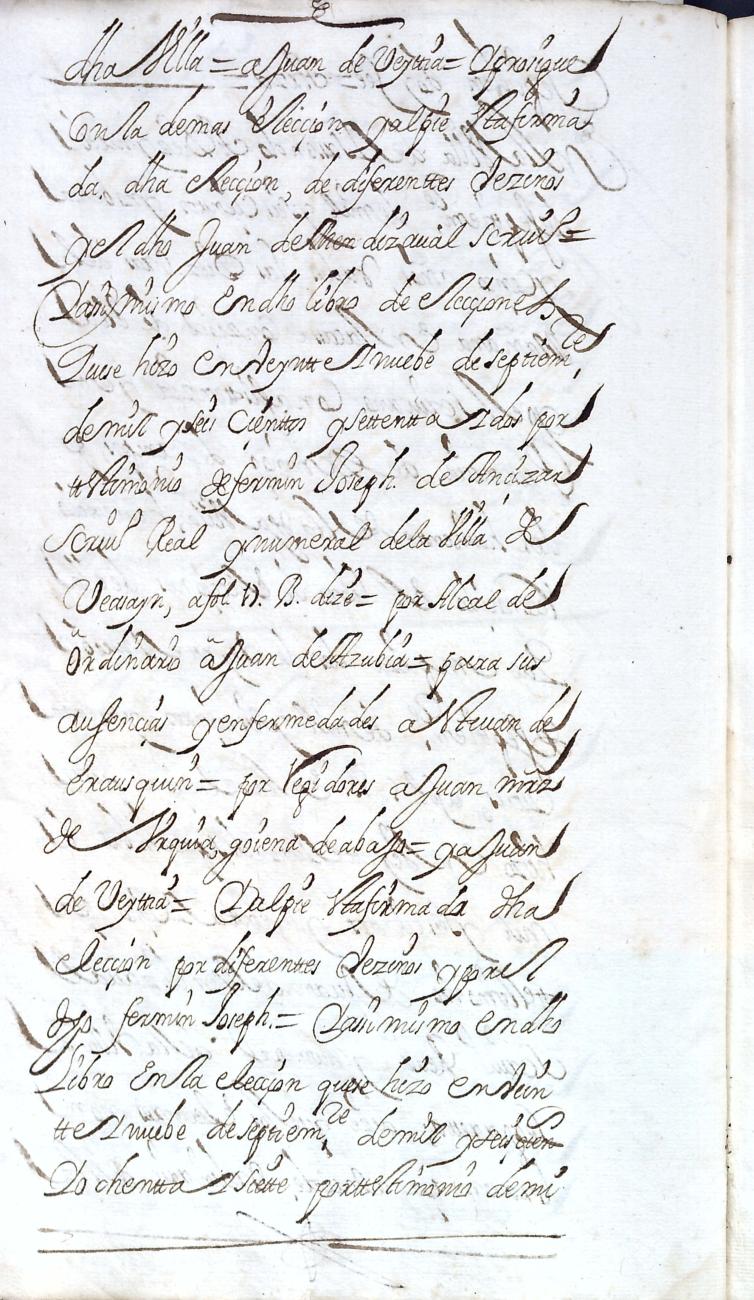 dha Villa = a Juan de Veytia = Y prosigue
con la demas eleccion y al pie esta firma
da, dha eleccion, de diferentes vezinos
y el dho Juan de Mendizaual scriu.º =
Y asimismo en dho libro de elecciones
que se hizo en veyntte y nuebe de septiem.re
de mil y seis cientos y settentta y dos por
ttestimonio de fermin Joseph. de Anizar
scriu.º Real y numeral de la Villa de
Veasayn, a fol. 17. B. dize = por Alcal de
ordinario a Juan de Azubia = para sus
ausencias y enfermedades a Esteuan de
erausquin = por Regidores a Juan mrz
de Vrquia, goiena de abajo = y a Juan
de Veytia = Y al pie esta firmada dha
eleccion por diferentes vezinos y por el
dho. fermin Joseph. = Y asimismo en dho
Libro en la eleccion que se hizo en vein
tte y nuebe de septiem.re de mil y seis cien.s
y ochentta y siette por ttestimonio de mi